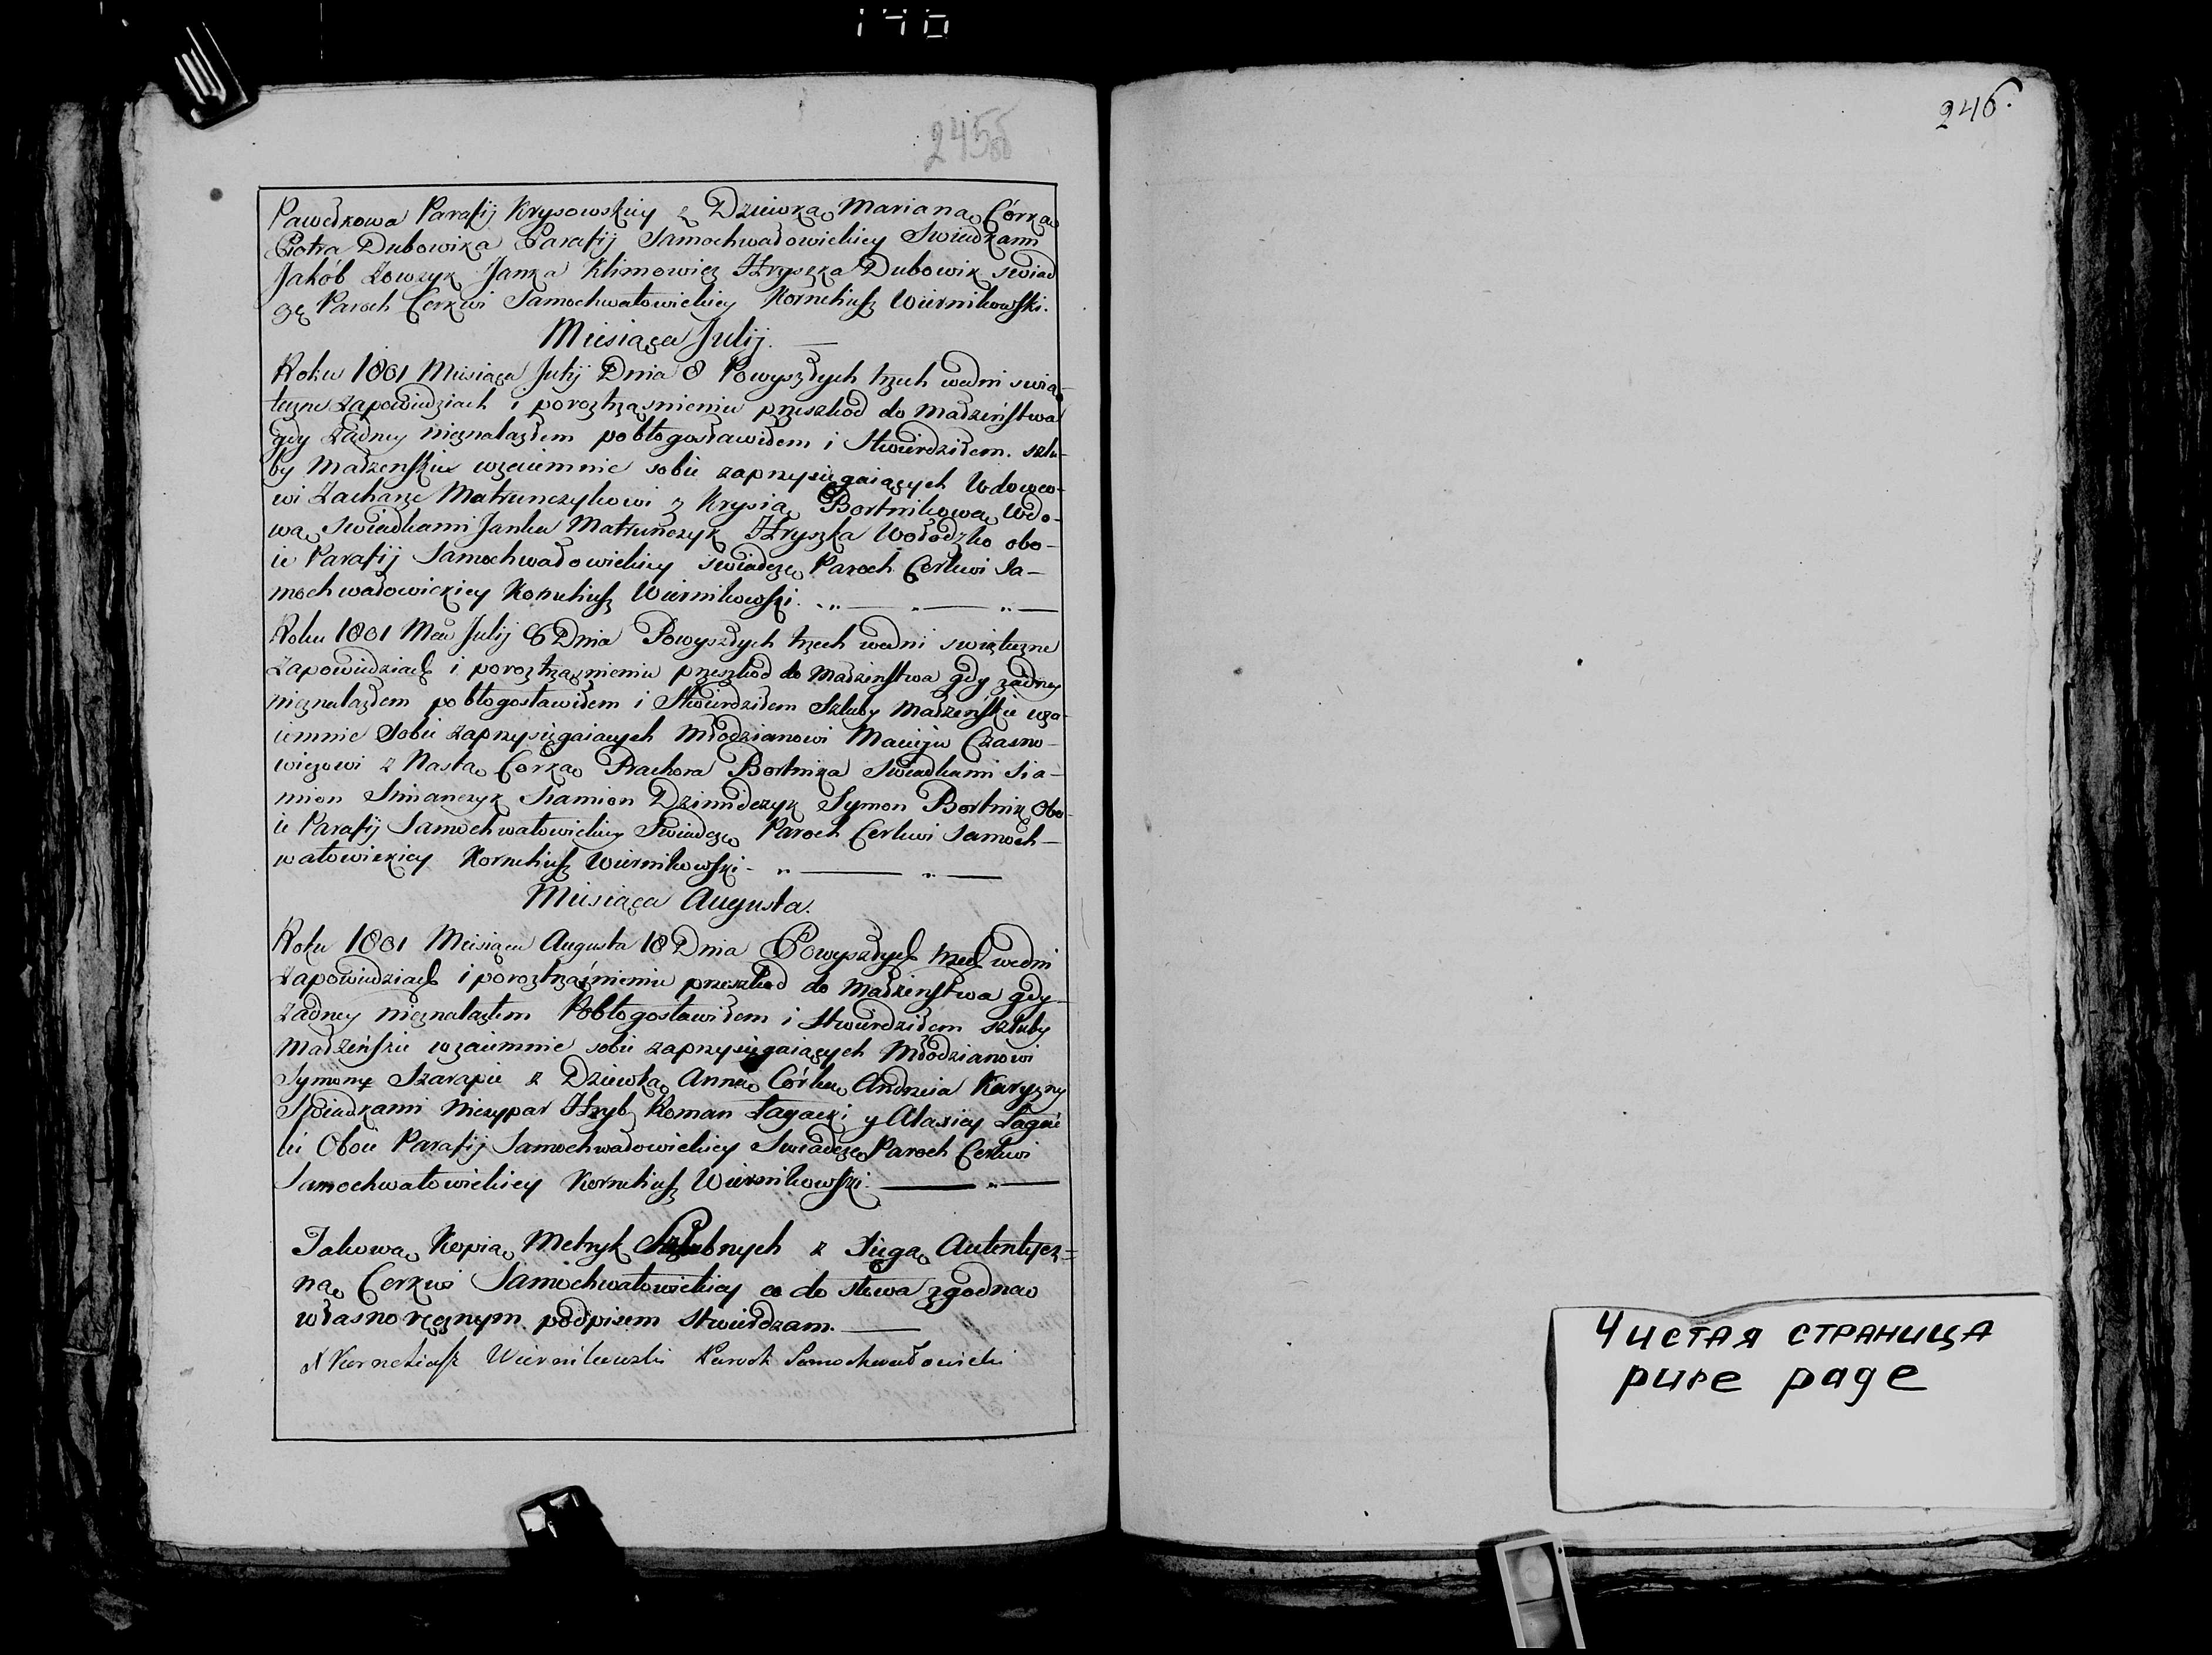 140
245об
Pawełkowa Parafij Krysowskiey z Dziewką Marianą Córką
Piotra Dubowika Parafij Samochwałowickiey Swiadkami
Jakób Łowzyk Janka Klimowicz Hryszka Dubowik swiad
czę Paroch Cerkwi Samochwałowickiey Korneliusz Wiernikowski.
Miesiąca Julij.
Roku 1801 Miesiąca Julij Dnia 8 Powyszłych trzech wedni swią-
teczne zapowiedziach i poroztrząsnieniu przeszkod do małżeństwa
gdy żadney nieznalazłem pobłogosławiłem i Stwierdziłem. szlu-
by Małżenskie wzaiemnie sobie zaprzysięgaiących Wdowco-
wi Zacharze Matrunczykowi z Krysią Bortnikową Wdo-
wą, swiadkami Janka Matrunczyk Hryszka Wołodzko obo-
ie Parafij Samochwałowickiey swiadczę Paroch Cerkwi Sa-
mochwałowickiey Korneliusz Wiernikowski.
Roku 1801 Mca Julij 8 Dnia Powyszłych trzech wedni swięteczne
Zapowiedziach i poroztrząsnieniu przeszkod do Małżenstwa gdy żadney
nieznalazłem pobłogosławiłem i Stwierdziłem Szluby Małżeńskie wza-
iemnie Sobie zaprzysięgaiacych Młodzianowi Macieju Czasno-
wiczowi z Nastą Corką Prachora Bortnika swiadkami Sia-
mion Siamion Dzimidczyk Symon Bortnik Obo-
ie Parafij Samochwałowickiey Swiadczę Paroch Cerkwi Samoch-
wałowickiey Korneliusz Wiernikowski
Miesiąca Augusta.
Roku 1801 Miesiąca Augusta 18 Dnia Powyszłych trzech wedni
Zapowiedziach i poroztrząśnieniu przeszkod do Małżenstwa gdy
żadney nieznalazłem Pobłogosławiłem i Stwierdziłem szluby
Małżeńskie wzaiemnie sobie zaprzysięgaiących Młodzianowi
Symonę Szarapie z Dziewką Anną Córką Andreia Karyzny
Swiadkami Niczypar Hryb Roman Łagacki y Alaxiey Łagac
ki Oboie Parafij Samochwałowickiey Swiadczę Paroch Cerkwi
Samochwałowickiey Korneliusz Wiernikowski.
Takową Kopią Metryk Szlubnych z Xięgą Autentycz=
ną Cerkwi Samochwałowickiey co do słowa zgodną
własnoręcznym podpisem stwierdzam.
X Korneliusz Wiernikowski Paroch Samochwałowicki
246.
Чистая страница
pure page